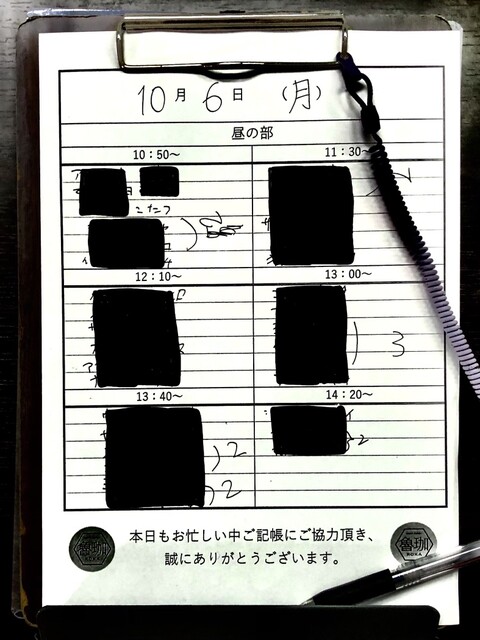 10月 6日 (月)
昼の部
10:50〜
11:30〜
12:10〜
13:00〜
3
13:40〜
14:20〜
2
2
2
本日もお忙しい中ご記帳にご協力頂き、
誠にありがとうございます。
魯珈
ROKA
魯珈
ROKA